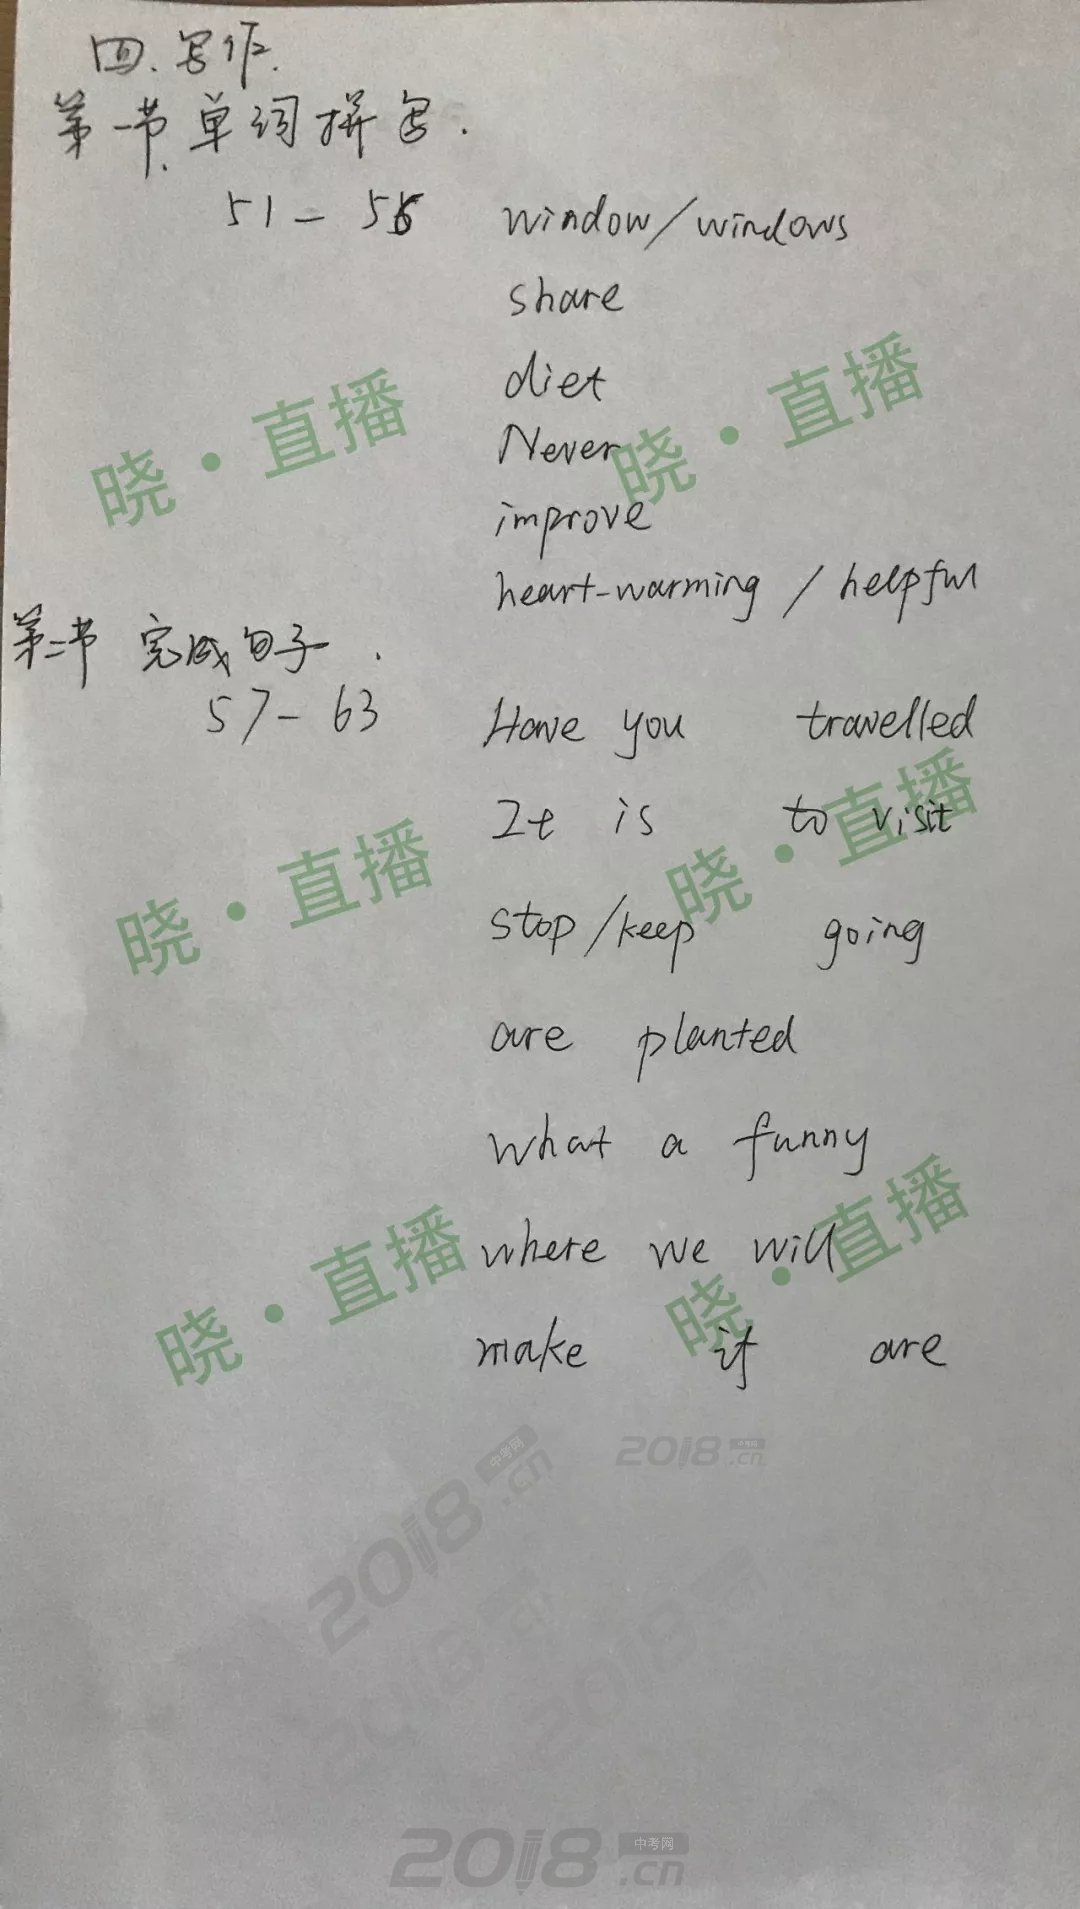 四.写作.
第一节.单词拼写.
51-56 window/windows
share
diet
晓·直播 晓·直播
Never
improve
heart-warming / helpful
第二节 完成句子.
57-63 Have you travelled
It is to visit
晓·直播 晓·直播
stop/keep going
are planted
what a funny
where we will
晓·直播 晓·直播
make if are
2018中考网.cn 2018中考网.cn
2018.cn 2018.cn
2018中考网.cn